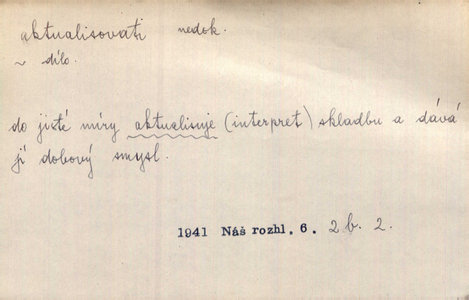 aktualisovati nedok.
~ dílo.
do jisté míry aktualisuje (interpret) skladbu a dává
jí dobový smysl.
1941 Náš rozhl. 6. 2 b. 2.